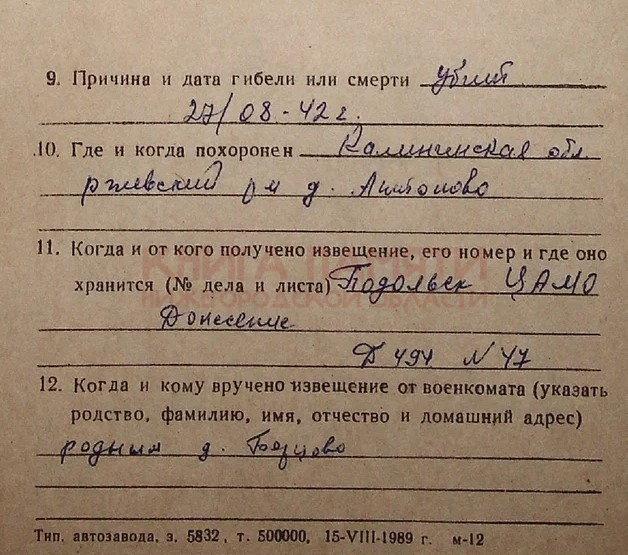 9. Причина и дата гибели или смерти убит
27/08-42 г.
10. Где и когда похоронен Калининская обл.
ржевский р-н д. Антоново
11. Когда и от кого получено извещение, его номер и где оно
КНИГА ПАМЯТИ
хранится (№ дела и листа) Подольск ЦАМО
НИЖЕГОРОДСКОЙ ОБЛАСТИ
Донесение
Д 494 N 47
12. Когда и кому вручено извещение от военкомата (указать
родство, фамилию, имя, отчество и домашний адрес)
родным д.
Тип. автозавода, з. 5832, т. 500000, 15-VIII-1989 г. м-12